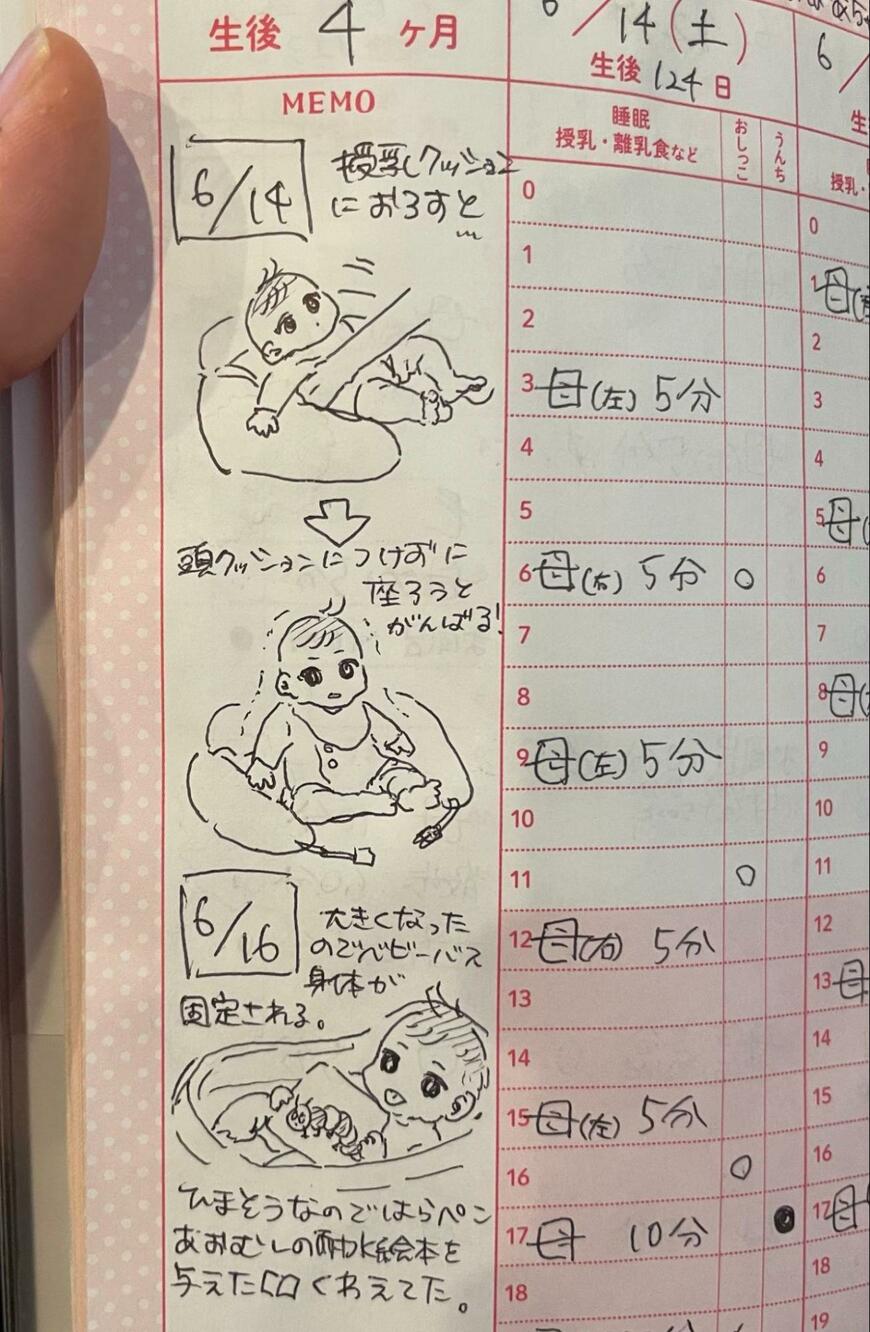 生後 4 ヶ月
MEMO
6/14
授乳クッション
におろすと
…
頭クッションにつけずに
座ろうと
がんばる!
6/16
大きくなった
のでベビーバス
身体が
固定される。
ひまそうなのではらペコ
あおむしの耐水絵本を
与えたらくわえてた。
6/14(土)
生後 124 日
睡眠
授乳・離乳食など
おしっこ
うんち
0
1
2
3 母(左) 5分
4
5
6 母(右) 5分 ○
7
8
9 母(左) 5分
10
11 ○
12 母(右) 5分
13
14
15 母(左) 5分
16 ○
17 母 10分 ●
18
6/
生
授乳・
0
1 母(
2
3
4
5 母(
6
7
8 母(
9
10
11
12
13 母
14
15
16
17 母
18
19